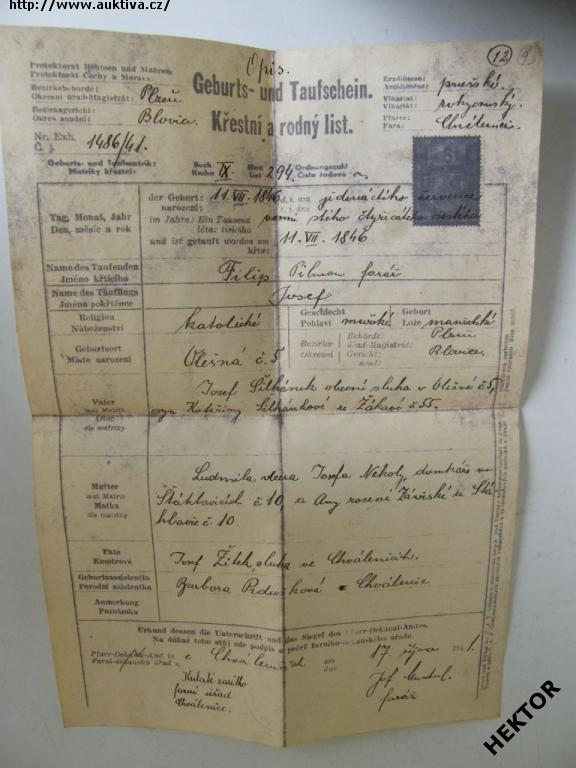 http://www.auktiva.cz/
Opis.
12
Protektorat Böhmen und Mähren
Protektorát Čechy a Morava
Bezirksbehörde:
Okresní úřad-Magistrát: Plzeň
Bezirksgericht:
Okres soudní: Blovice
Nr. Exh.
Č. j. 1486/41.
Geburts- und Taufschein.
Křestní a rodný list.
Erzdiözese:
Arcidiecése: pražské
Vikariat:
Vikariát: rokycanský
Pfarre:
Fara: Chválenice
Geburts- und Taufmatrik:
Matriky křestní:
Buch
Kniha IX.
Blatt
List 294.
Ordnungszahl
Číslo řadové
Tag, Monat, Jahr
Den, měsíc a rok
der Geburt:
narození: 11. VII. 1846 d. i. am jedenáctého července
im Jahre: Ein Tausend
léta: tisícího osmi stého čtyřicátého šestého
und ist getauft worden am
křtu 11. VII. 1846
Name des Taufenden
Jméno křtícího
Filip Pilman farář
Name des Täuflings
Jméno pokřtěnce
Josef
Religion
Náboženství
katolické
Geschlecht
Pohlaví mužské
Geburt
Lože manželské
Geburtsort
Místo narození
Olešná č. 5
Bezirks-
Okresní
Behörde:
úřad-Magistrát: Plzeň
Gericht:
soud: Blovice.
Vater
laut Matrik
Otec
dle matriky
Josef Šilhánek obecní sluha v Olešné č 5,
syn Kateřiny Šilhánkové ze Žákavé č 55.
Mutter
laut Matrik
Matka
dle matriky
Ludmila dcera Josefa Nekoly domkáře ve
Štáhlavicích č 10, a Anny rozené Záviské ze Štá
hlavic č. 10
Pate
Kmotrové
Josef Žítek, sluha ve Chválenicích.
Geburtsassistentin
Porodní asistentka
Barbora z Chválenic
Anmerkung
Poznámka
Urkund dessen die Unterschrift und das Siegel des Pfarr-Dekanal-Amtes.
Na důkaz toho stůj zde podpis a pečeť farního-děkanského úřadu.
Pfarr-Dekanal-Amt in
Farní-děkanský úřad
am
dne 17. října 1941.
Kulaté razítko
farní úřad
Chválenice.
Jos.
farář
HEKTOR